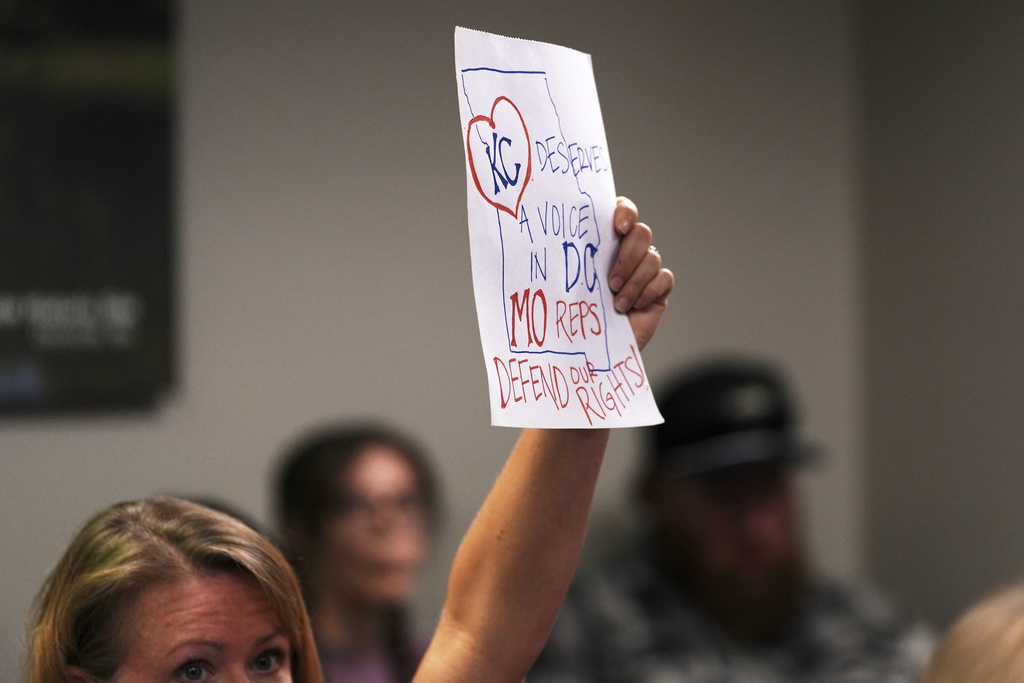 KC DESERVES
A VOICE
IN D.C.
MO REPS
DEFEND OUR
RIGHTS!